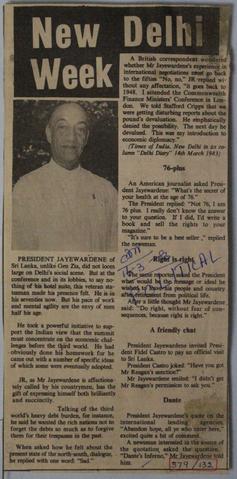 New Delhi
Week
A British correspondent wondered
whether Mr Jayewardene's experience in
international negotiations must go back
to the fifties "No, no," JR replied
without any affectation, "it goes back to
1948. I attended the Commonwealth
Finance Ministers' Conference in Lon-
don. We told Stafford Cripps that we
were getting disturbing reports about the
pound's devaluation. He emphatically
denied the possibility. The next day he
devalued. This was my introduction to
economic diplomacy."
(Times of India, New Delhi in its co-
lumn "Delhi Diary" 14th March 1983)
76-plus
An American journalist asked Presi-
dent Jayewardene: "What's the secret of
your health at the age of 76."
The President replied: "Not 76, I am
76 plus. I really don't know the answer
to your question. If I did, I'd write a
book and sell the rights to your
magazine."
"It's sure to be a best seller", replied
the newsman.
Right is right
The same reporter asked the President
what would be his message or ideal he
wished for people and country
after retirement from political life.
After a little thought Mr Jayewardene
said: "Do right, without fear of con-
sequence, because right is right."
A friendly chat
President Jayewardene invited Presi-
dent Fidel Castro to pay an official visit
to Sri Lanka.
President Castro joked: "Have you got
Mr Reagan's sanction?"
Mr Jayewardene smiled: "I didn't get
Mr Reagan's permission to ask you."
Dante
President Jayewardene's quote on the
international lending agencies,
"Abandon hope, all ye who enter here,"
excited quite a bit of comment.
A newsman interested in the source of
the quotation, asked the question.
"Dante's Inferno," Mr Jayewardene told
him.
PRESIDENT JAYEWARDENE of
Sri Lanka, unlike Gen Zia, did not loom
large on Delhi's social scene. But at the
conference and in its lobbies, to say no-
thing of his hotel suite, this veteran sta-
tesman made his presence felt. He is in
his seventies now. But his pace of work
and mental agility are the envy of men
half his age.
He took a powerful initiative to sup-
port the Indian view that the summit
must concentrate on the economic chal-
lenges before the third world. He had
obviously done his homework for he
came out with a number of specific ideas
of which some were eventually adopted.
JR, as Mr Jayewardene is affectiona-
tely called by his countrymen, has the
gift of expressing himself both brilliantly
and succinctly.
Talking of the third
world's heavy debt burden, for instance,
he said he wanted the rich nations not to
forget the debts so much as to forgive
them for their trespasses in the past.
When asked how he felt about the
present state of the north-south, dialogue,
he replied with one word: "Sad."
POLITICAL
579/132